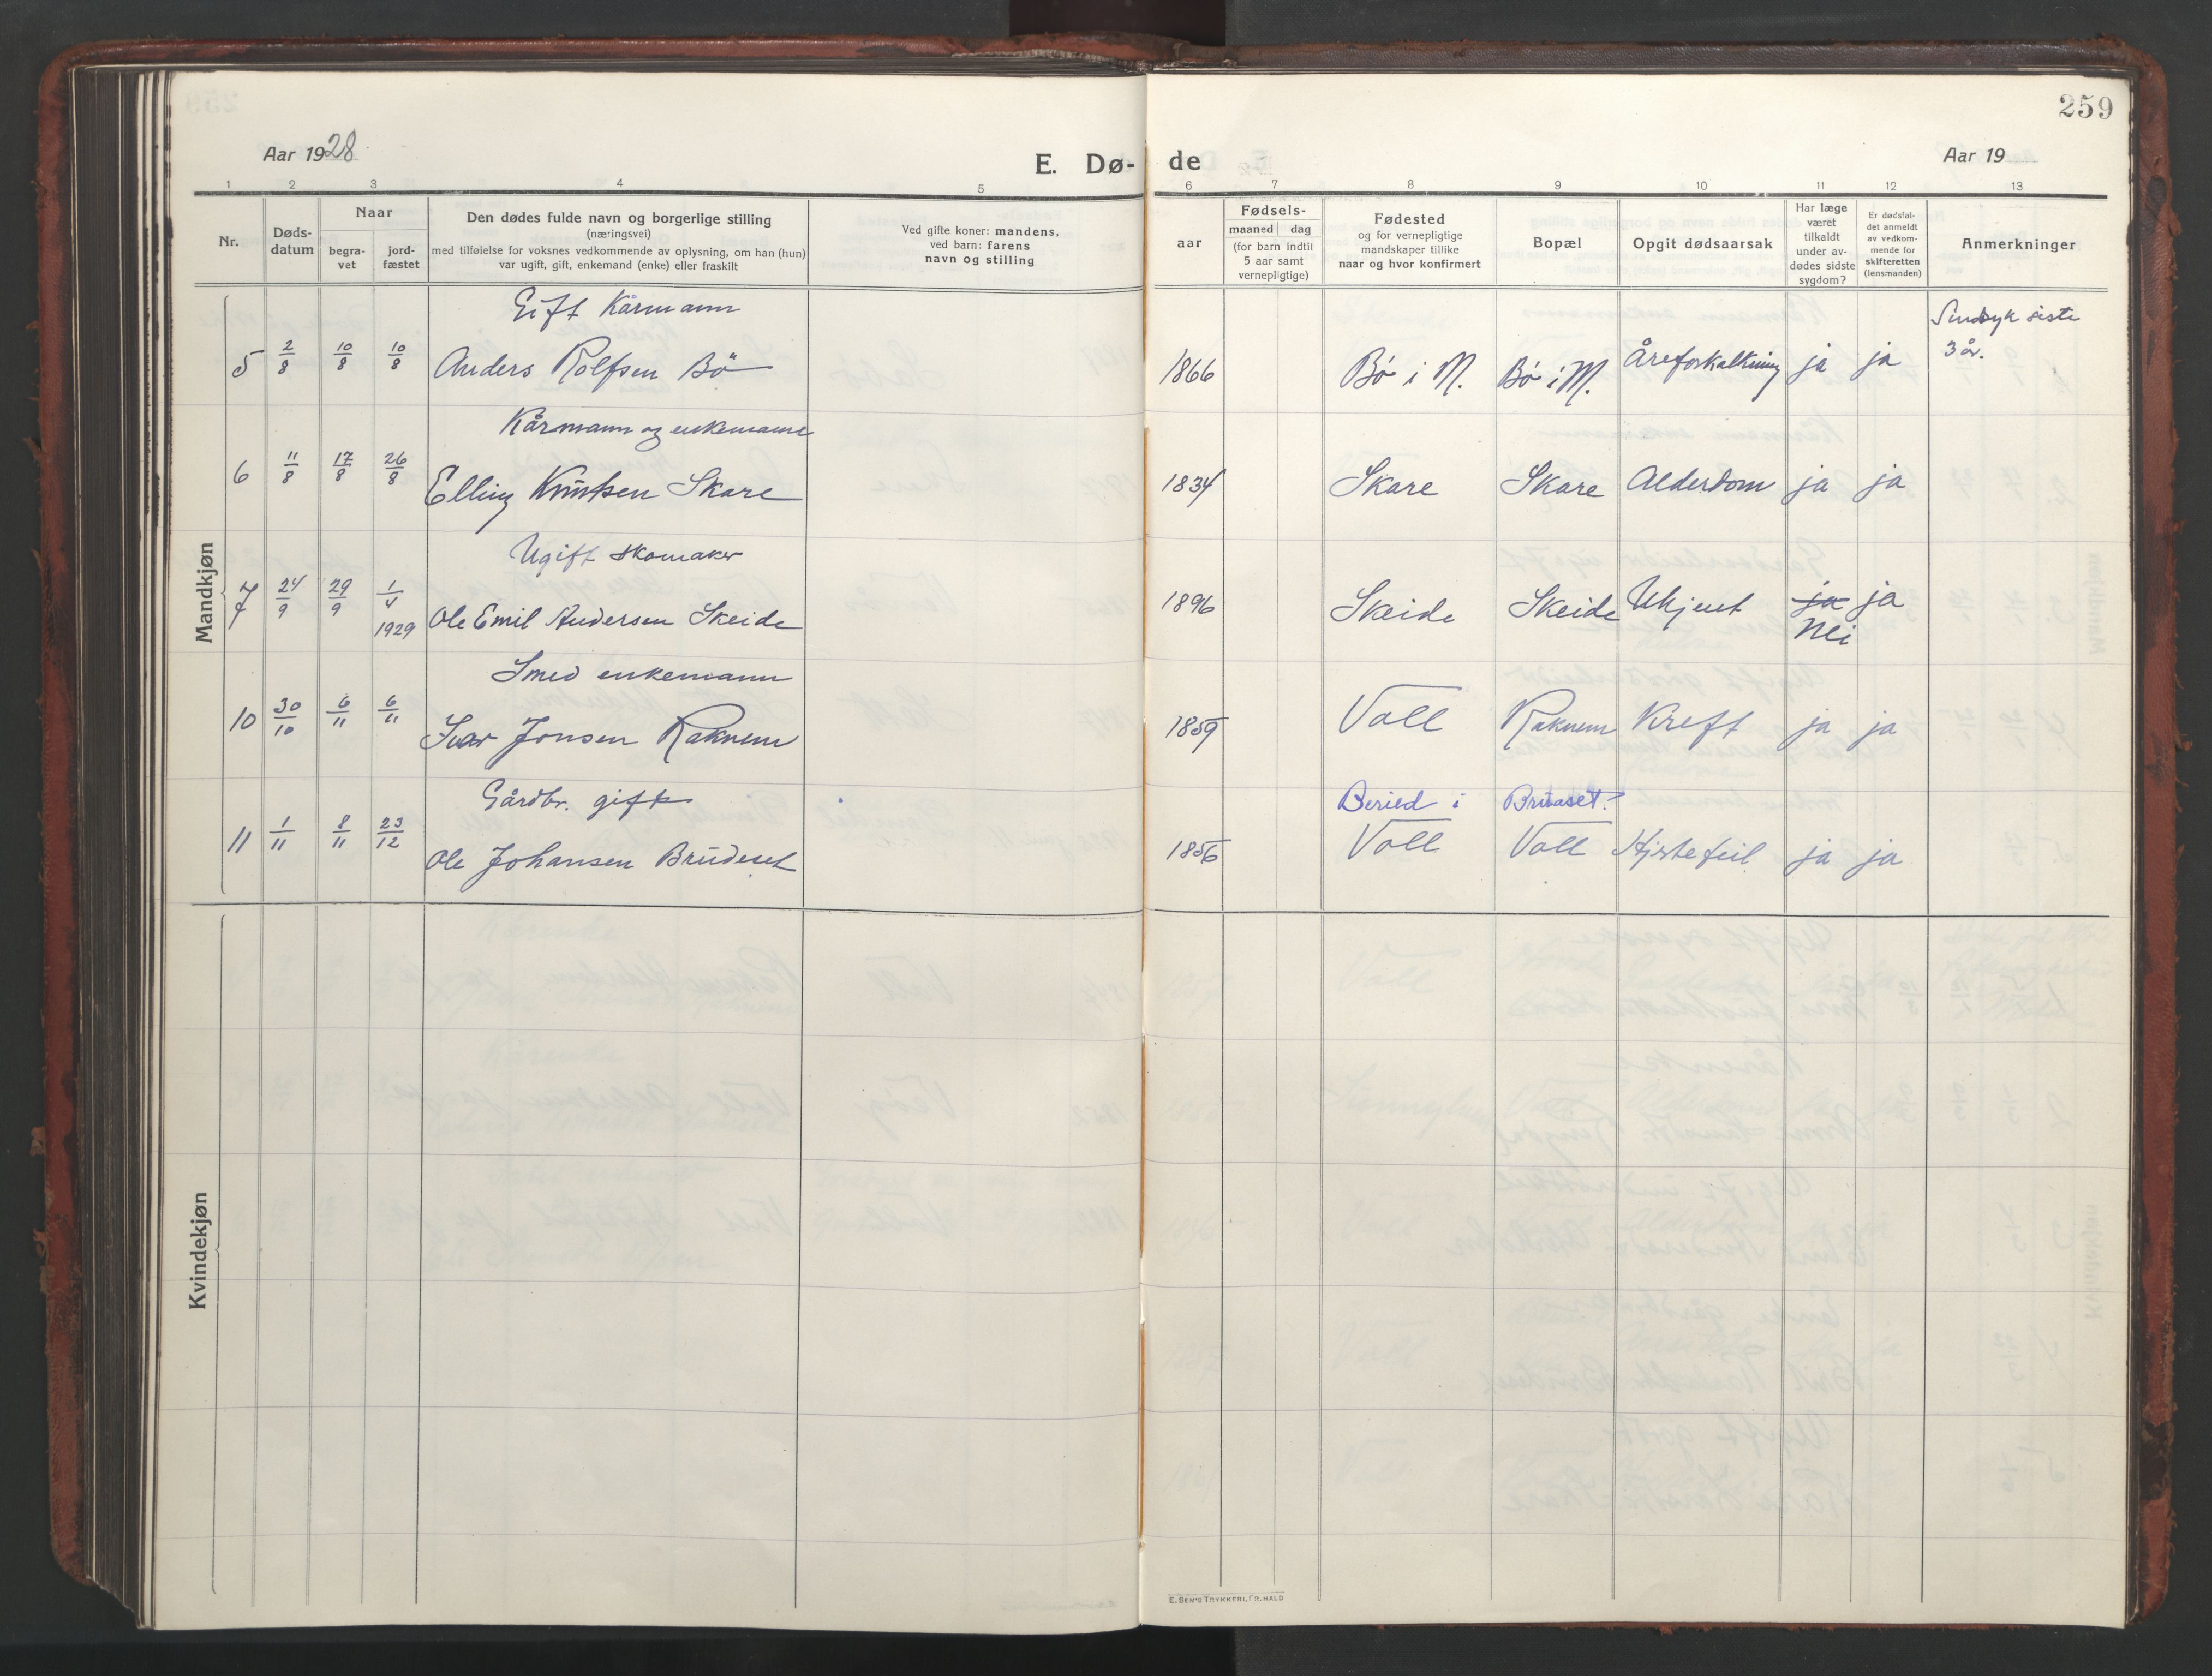 259
Aar 1928
E. Dø-
de
Aar 19
1 2 3 4 5 6 7 8 9 10 11 12 13
Nr.
Døds-
datum
Naar
begra-
vet
jord-
fæstet
Den dødes fulde navn og borgerlige stilling
(næringsvei)
med tilføielse for voksnes vedkommende av oplysning, om han (hun)
var ugift, gift, enkemand (enke) eller fraskilt
Ved gifte koner: mandens,
ved barn: farens
navn og stilling
aar
Fødsels-
maaned dag
(for barn indtil
5 aar samt
vernepligtige)
Fødested
og for vernepligtige
mandskaper tillike
naar og hvor konfirmert
Bopæl
Opgit dødsaarsak
Har læge
været
tilkaldt
under av-
dødes sidste
sygdom?
Er dødsfal-
det anmeldt
av vedkom-
mende for
skifteretten
(lensmanden)
Anmerkninger
Mandkjøn
Gift Kårmann
5 2/8 10/8 10/8 Anders Rolfsen Bö 1866 Bö i M. Bö i M. Åreforkalkning ja ja
Sindsyk siste
3 år.
Kårmann og enkemann
6 11/8 17/8 26/8 Elling Knutsen Skare 1834 Skare Skare Alderdom ja ja
Ugift skomaker
7 24/9 29/9 1/4
1929
Ole Emil Andersen Skeide 1896 Skeide Skeide Ukjent ja ja
Nei
Smed enkemann
10 30/10 6/11 6/11 Ivar Jonsen Raknem 1859 Voll Raknem Kreft ja ja
Gårdbr. gift
11 1/11 8/11 23/12 Ole Johansen Brudeset 1856
i
Voll Voll Hjertefeil ja ja
Kvindekjøn
E. SEM'S TRYKKERI, FR. HALD